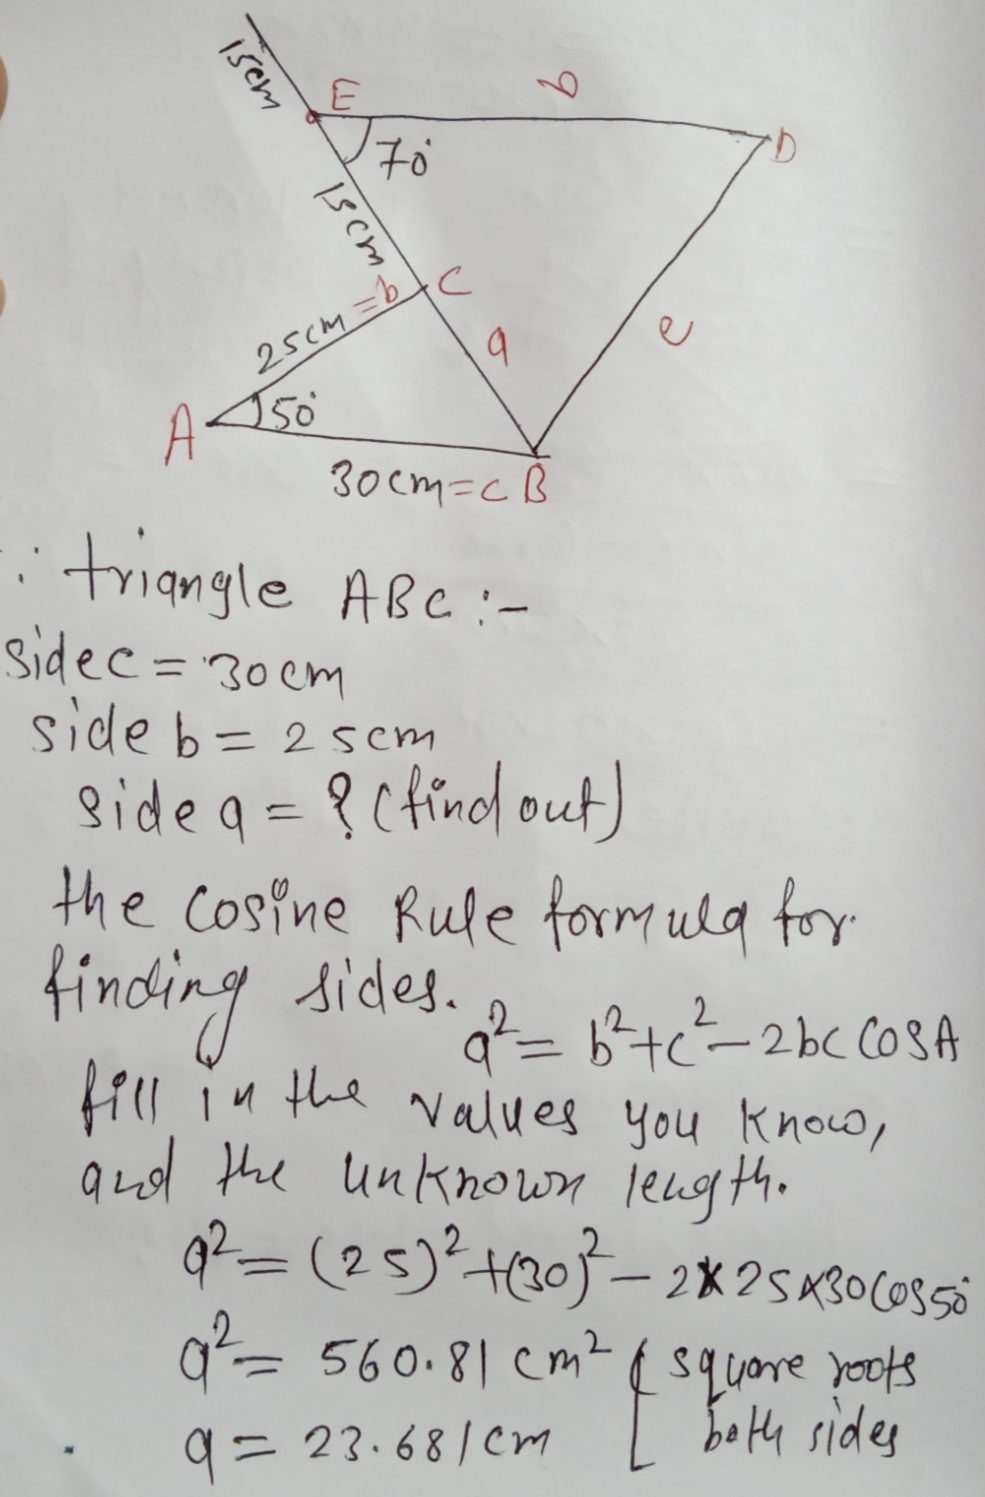 15cm
E
b
D
70°
15cm
C
25cm=b
a
e
A
50°
30cm=c B
∵ triangle ABC :-
Side c = 30cm
side b = 25cm
side a = ? (find out)
the cosine Rule formula for
finding sides.
a² = b²+c²-2bc COSA
fill in the values you know,
and the unknown length.
a² = (25)²+(30)²-2×25×30cos50°
a² = 560.81 cm² [ square roots
a = 23.681cm both sides